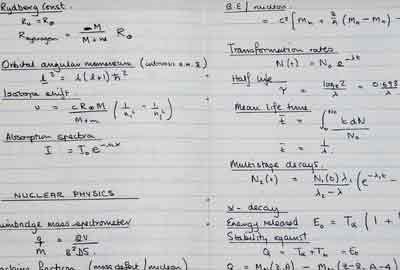 Rydberg Const.
R∞ = R∞
R hydrogen = M / M+m R∞
Orbital angular momentum (
l² = l(l+1)ħ²
Isotope shift.
υ = cR∞M / M+m (1/n₁² - 1/n₂²)
Absorption spectra
I = I₀e^-nαx
NUCLEAR PHYSICS
mass spectrometer
q/M = 2V / B²DS
fraction (mass defect / nucleon)
B.E / nucleon
= c² [Mn + Z/A (MH - Mn) -
Transformation rates
N(t) = N₀ e^-λt
Half life
τ = loge2 / λ = 0.693 / λ
Mean life time
t̄ = ∫₀^N₀ t dN / N₀
t̄ = 1/λ
Multistage decays.
N₂(t) = N₁(0) λ₁ / λ₂ - λ₁ (e^-λ₁t -
α - decay
Energy released E₀ = Tα (1 +
Stability against
Q = Tα + Tb = E₀
Q = M(Z,A) - M(Z-2, A-4)